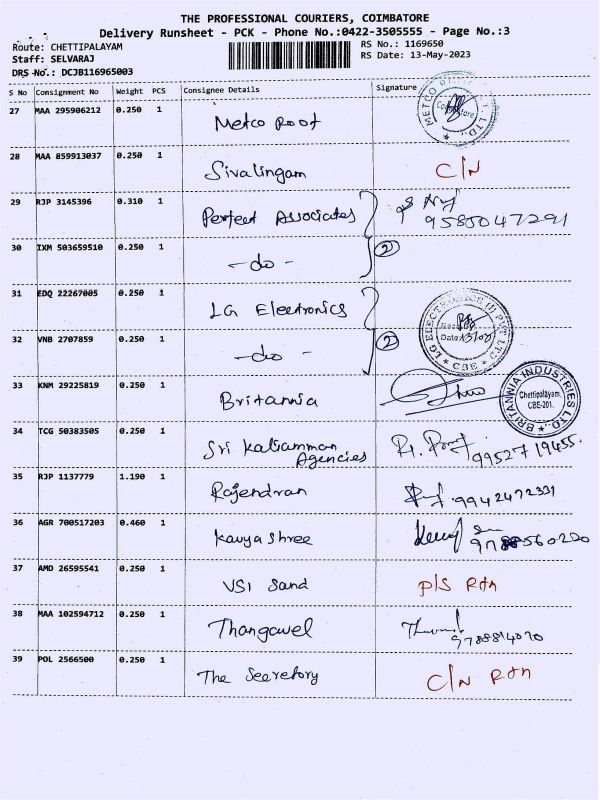 THE PROFESSIONAL COURIERS, COIMBATORE
Delivery Runsheet - PCK - Phone No.:0422-3505555 - Page No.:3
Route: CHETTIPALAYAM RS No.: 1169650
Staff: SELVARAJ RS Date: 13-May-2023
DRS No.: DCJB116965003
S No Consignment No Weight PCS Consignee Details Signature
27 MAA 295906212 0.250 1 Metco Roof
28 MAA 859913037 0.250 1 Sivalingam C/N
29 RJP 3145396 0.310 1 Perfect Associates 9585047291
30 IXM 503659510 0.250 1 -do- 2
31 EDQ 22267005 0.250 1 LG Electronics
32 VNB 2707859 0.250 1 -do- 2
LG ELECTRONICS (I) PVT LTD
CBE
33 KNM 29225819 0.250 1 Britannia
BRITANNIA INDUSTRIES LTD.,
Chettipalayam,
CBE-201.
34 TCG 50383505 0.250 1 Sri Kaliamman
Agencies 9952719455
35 RJP 1137779 1.190 1 Rajendran 9942472331
36 AGR 700517203 0.460 1 Kavya Shree
37 AMD 26595541 0.250 1 VSI Sand P/S Rtn
38 MAA 102594712 0.250 1 Thangavel 9788814070
39 POL 2566500 0.250 1 The Secretory C/N Rtn